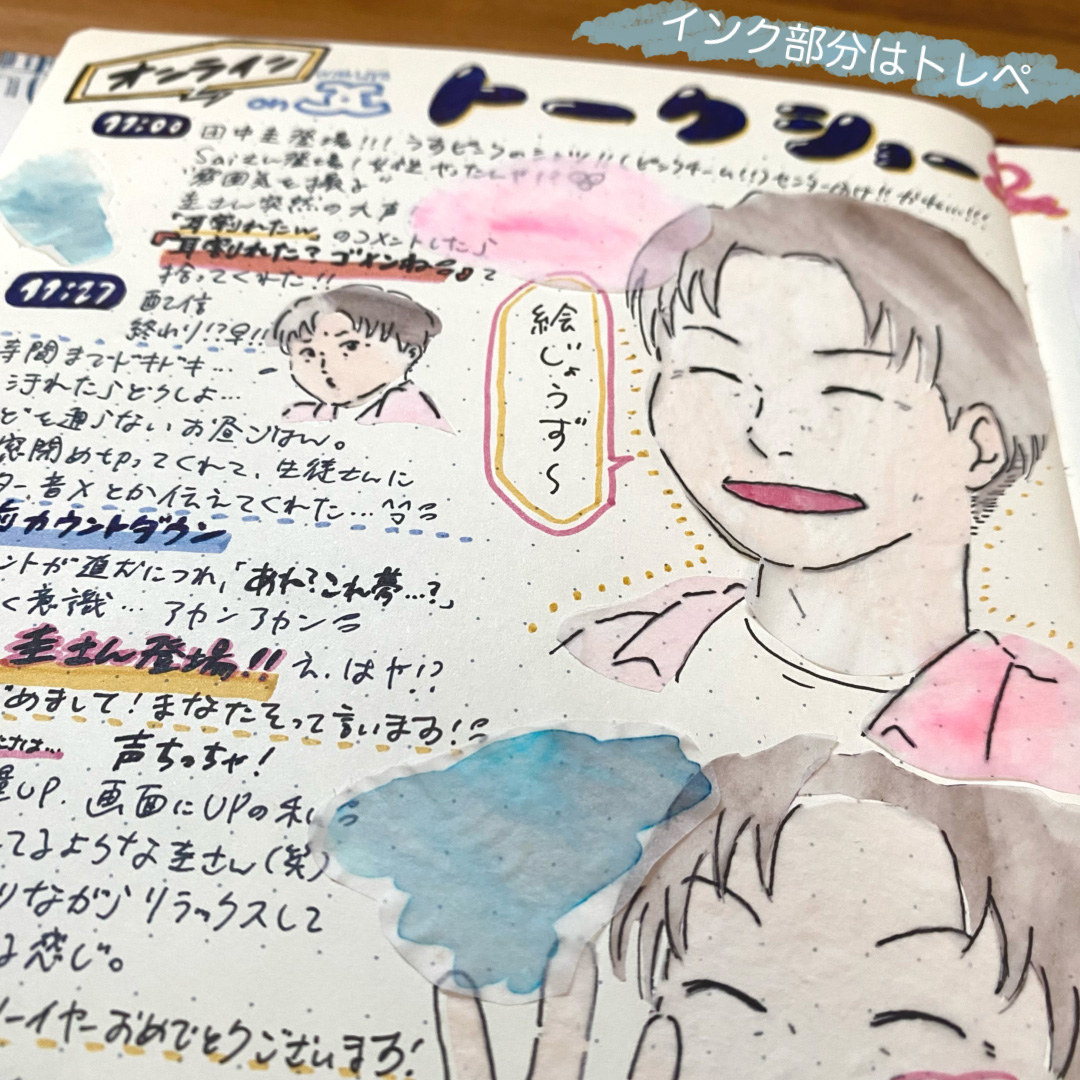 インク部分はトレペ
オンライン
on
トークショー
11:00
田中圭登場!!! うすピンクのシャツ!! (ピンクチーム(!!) センター分け!! かわいい!!!
Saiさん登場!女性やったんや!!
"雰囲気を撮る"
圭さん突然の大声
「耳割れたw のコメントしたら
「耳割れた?ゴメンね」って
拾ってくれた!!
11:27
配信
終わり!?早!!
絵じょうず〜
時間までドキドキ…
汚れたらどうしよ…
どを通らないお昼ごはん。
窓閉め切ってくれて、生徒さんに
ター音Xとか伝えてくれた…
前カウントダウン
ントが進むにつれ、「あれ?これ夢…?」
く意識… アカンアカン
圭さん登場!! え、はや!?
じめまして!まなたそって言います!
声ちっちゃ!
量UP. 画面にUPの私
てるような圭さん(笑)
りながら リラックスして
る感じ。
ーイヤーおめでとうございます!